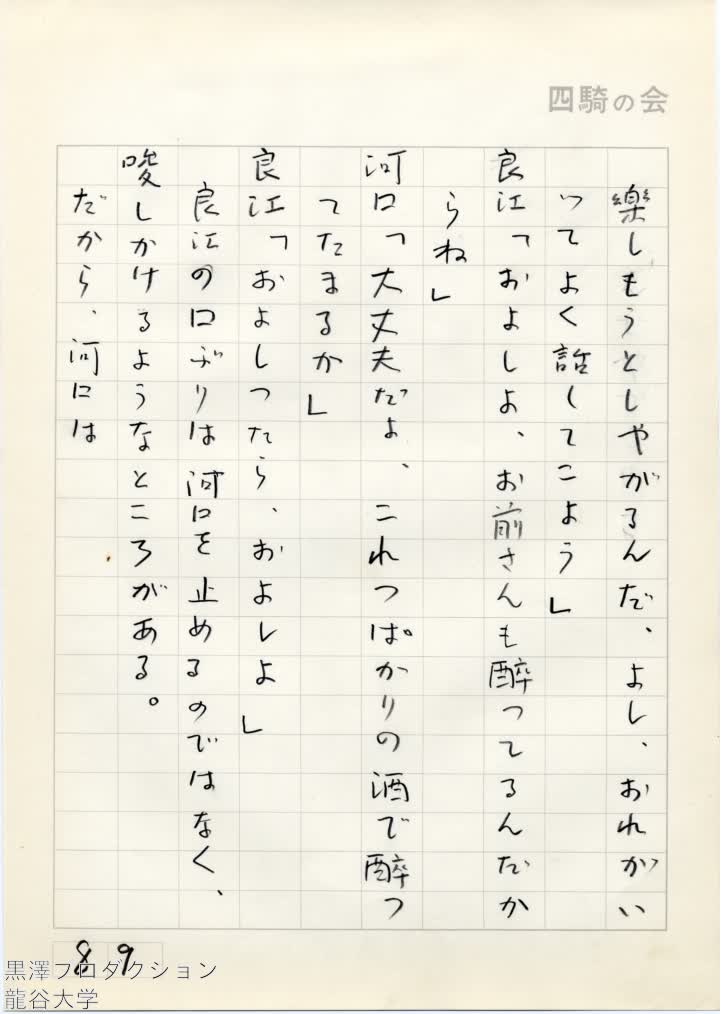 四騎の会
樂しもうとしやがるんだ、よし、おれがい
ってよく話してこよう」
良江「およしよ、お前さんも醉ってるんだか
らね」
河口「大丈夫だよ、これっぱかりの酒で醉っ
てたまるか」
良江「およしったら、およしよ」
良江の口ぶりは河口を止めるのではなく、
唆しかけるようなところがある。
だから、河口は
89
黒澤プロダクション
龍谷大学